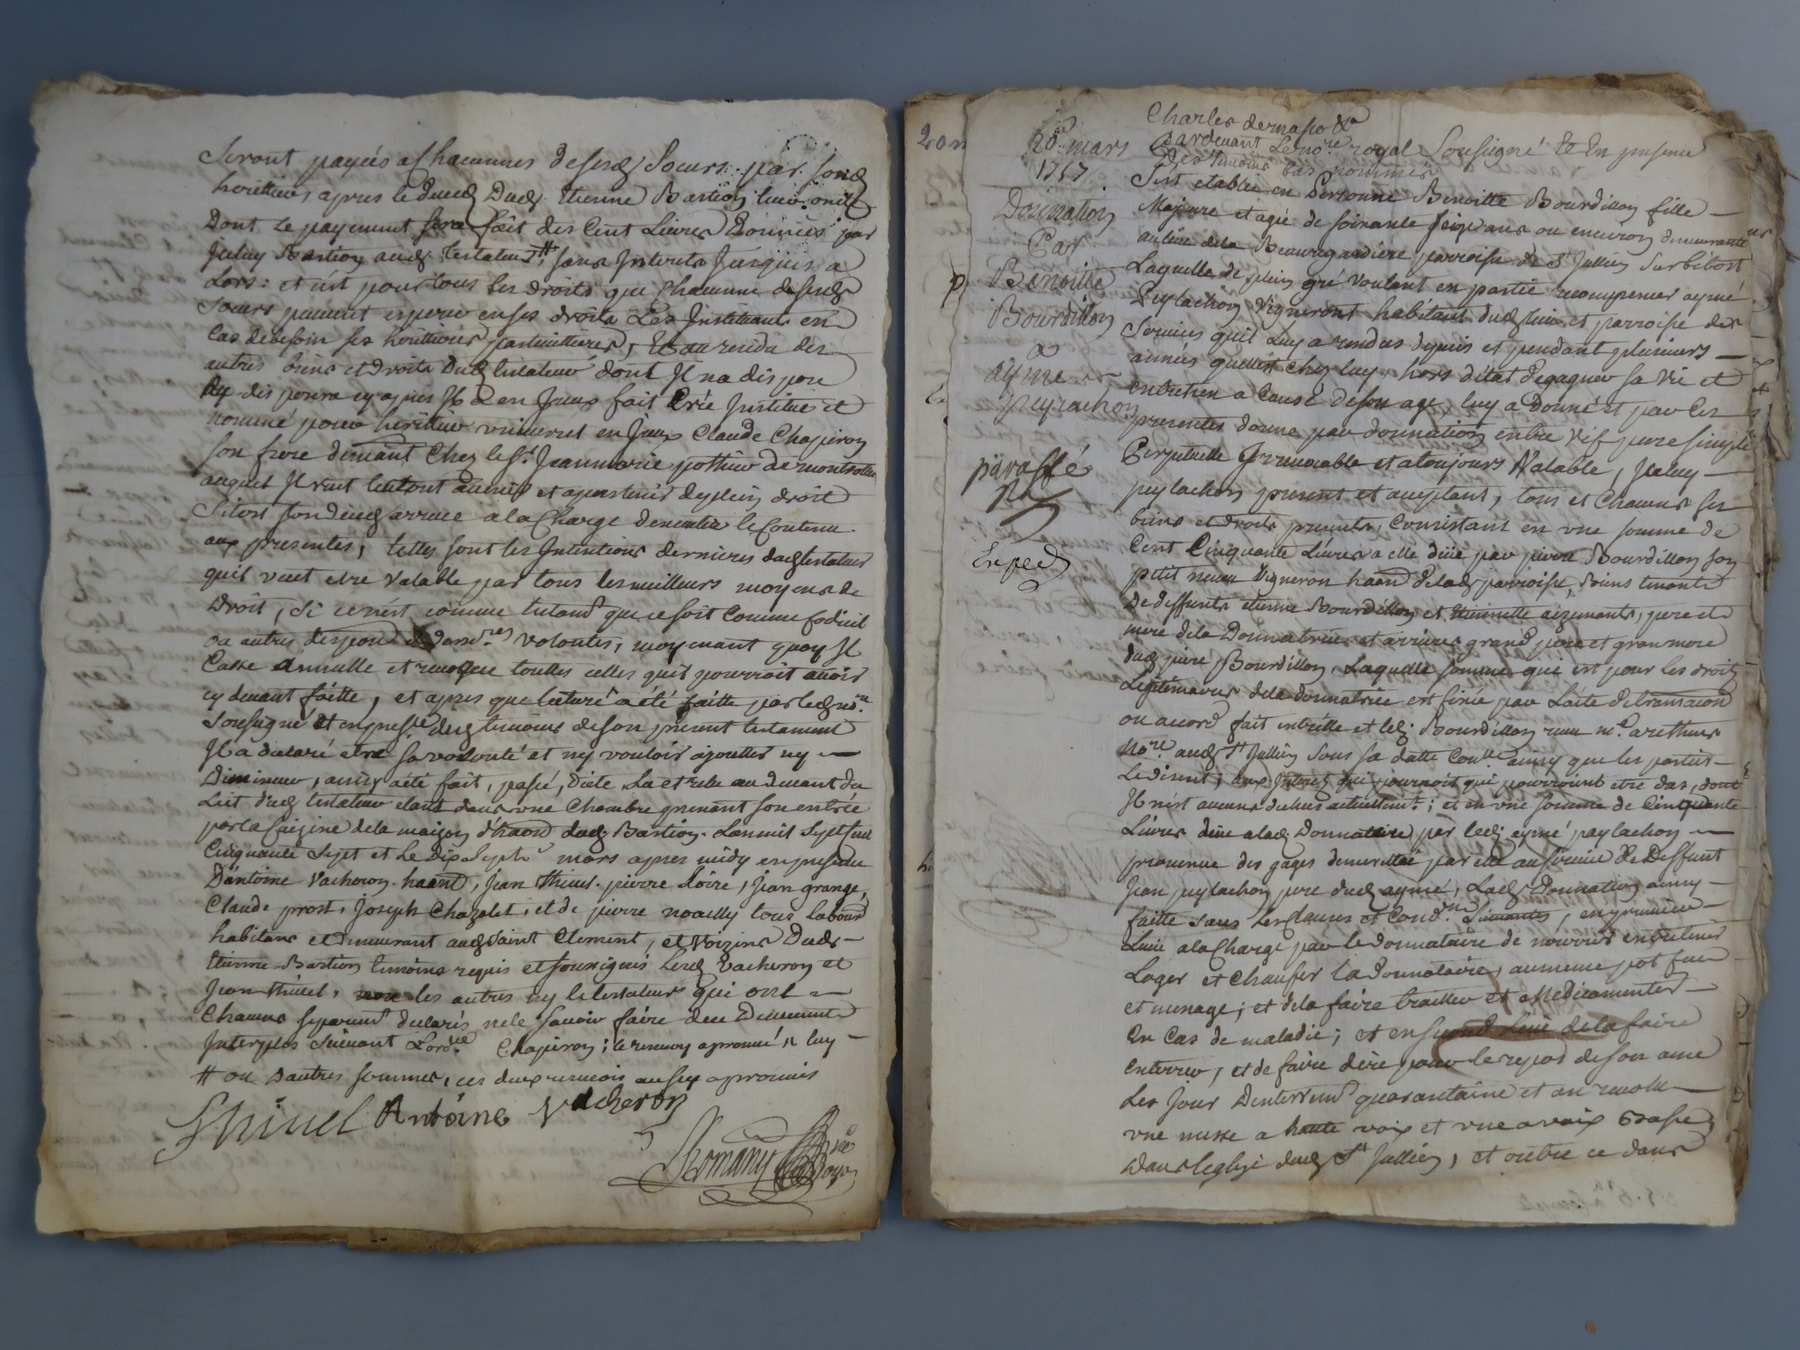 seront payées a Chacunnes desesd Soeurs par sond
heritier, apres le deced dud. Etienne Bastion leur oncle
Dont le payement sera fait des Cent Livres Données par
Jceluy Bastion aud. testateur # sans Interets Jusques a
Lors: et c'est pour tous les droits que Chacunne desesd
soeurs peuvent esperer en ses droits Les Instituant en
Cas de besoin ses heritieres particulieres, Et au residu des
autres biens et droits dud testateur dont Jl na dispose
ny disposera cy apres Jl a en Jceux fait Crée Jnstitue et
nommé pour heritier universel en Jceux Claude Chaperon
son frere demeurant Chez le Sr. Jeanmarie pothier de montrotier
auquel Jl veut le tout avenir et apartenir de plein droit
sitost son deced arrivé a la Charge d'executer le Contenu
aux presentes, telles sont les Intentions dernieres dud testateur
quil veut etre Valable par tous les meilleurs moyens de
Droit, si ce n'est comme testamt que ce soit Comme Codicil
ou autres dispon de dern.res volontés, moyenant quoy Jl
Casse Annulle et revoque touttes celles quil pourroit avoir
cy devant faitte, et apres que lecture a été faitte par led no.re
soussigné et en prese des temoins de son present testament
Jl a declaré etre sa volonté et ny vouloir ajoutter ny
Diminuer, ainsy a été fait, passé, Dicte La et relu au devant du
Lict dud testateur etant dans une Chambre prenant son entrée
par la Cuizine de la maizon d'haon dud Bastion. Lan mil Sept cent
Cinquante Sept et Le Dix Sept.e mars apres midy en presence
D'antoine Vacheron haant, Jean thivel, pierre Loire, Jean grange,
Claude prost, Joseph Chazelet, et de pierre noailly tous Labour
habitans et demeurant aud saint Clement, et Voizins Dud
Etienne Bastion temoins requis et soussignés Lesd Vacheron et
Jean thivel, non les autres ny le testateur qui ont
Chacuns separemt declarés ne le savoir faire de ce Deuement
Interpelés suivant Lord.ce Chaperon; le renvoy aprouvé a luy
# ou d'autres sommes, ces deux renvois aussy aprouvés
Thivel Antoine Vacheron
Romany
20.e mars
1757
Donnation
Par
Benoitte
Bourdillon
a
aymé
peylachon
paraffé
Exped
Charles demasso &a
Pardevant Le no.re royal Soussigné Et En presence
des temoins bas nommés
S'est etablie en Personne Benoitte Bourdillon fille
Majeure et agée de soixante seize ans ou environ demeurante
au lieu de la Beauregardiere parroisse de St Jullien sur bibost
Laquelle de plein gré voulant en partie recompenser aymé
Peylachon Vigneront habitant dud lieu et parroise des
services quil Luy a rendus depuis et pendant plusieurs
années quelle est chez luy hors d'état de gagner sa vie et
entretien a Cause de son age, luy a Donné et par Les
presentes donne par donnation entre vif pure simple
Perpetuelle Jrrevocable et atoujours Valable, Jceluy
peylachon present et acceptant, tous et Chacuns ses
biens et droits presents, Consistant en une somme de
Cent Cinquante Livres a elle dûe par pierre Bourdillon son
petit neveu Vigneron haant de lad parroise,
De deffunts etienne Bourdillon et Etiennette aizemants, pere et
mere de la Donnatrice et arriere grand pere et gran mere
dud pierre Bourdillon, Laquelle somme qui est pour les droits
Legitimaires de la donnatrice est finie par Lacte de transaction
ou accord fait entr'elle et led. Bourdillon
no.re aud St Jullien sous sa datte Con.lle ainsy que les parties
Le disent, aux Jnterets qui pourroient etre dus, dont
Jl n'est aucuns dechus actuellemt; et en une somme de Cinquante
Livres dûe a lad. Donnataire par led. aymé paylachon
provenue des gages demerittée par elle au service de Deffunt
Jean peylachon pere dud aymé, Lad Donnation ainsy
faitte sous Les Clauses et Cond.on suivantes, en premier
Lieu ala Charge par le donnataire de nourrir entretenir
Loger et Chaufer la donnataire, au meme pot feu
et menage; et de la faire traitter et Medicamenter
En Cas de maladie; et en second Lieu de la faire
enterrer, et de faire dire pour le repos de son ame
Les Jour D'enterremt quarantaine et an revolu
une messe a haute voix et une a voix Basse
Dans leglize dud St Jullien, et outre ce dans